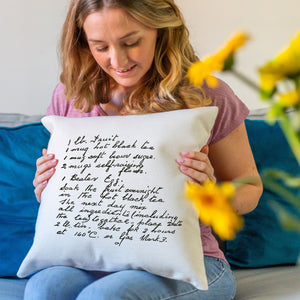 1 lb. Fruit
1 mug hot black tea
1 mug soft brown sugar
2 mugs self-raising flour
1 Beaten Egg.
Soak the fruit overnight
in the hot black tea
The next day mix
all ingredients (including
the tea) together, place into
2 lb tin, bake for 2 hours
at 160°C or Gas Mark 3.